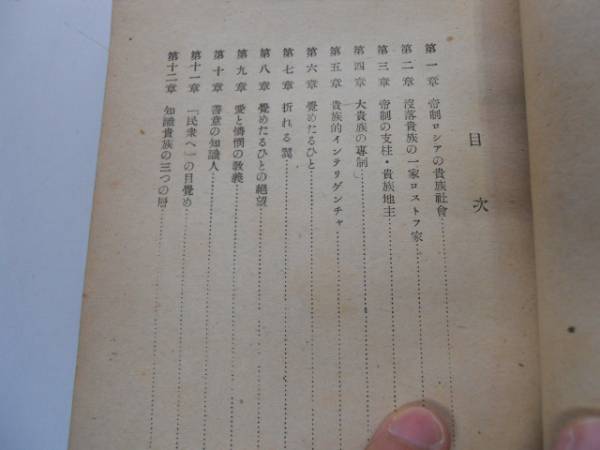 目次
第一章 帝制ロシアの貴族社會
第二章 沒落貴族の一家ロストフ家
第三章 帝制の支柱・貴族地主
第四章 大貴族の專制
第五章 貴族的インテリゲンチャ
第六章 覺めたるひと
第七章 折れる翼
第八章 覺めたるひとの絕望
第九章 愛と憐憫の敎義
第十章 善意の知識人
第十一章 「民衆へ」の目覺め
第十二章 知識貴族の三つの層